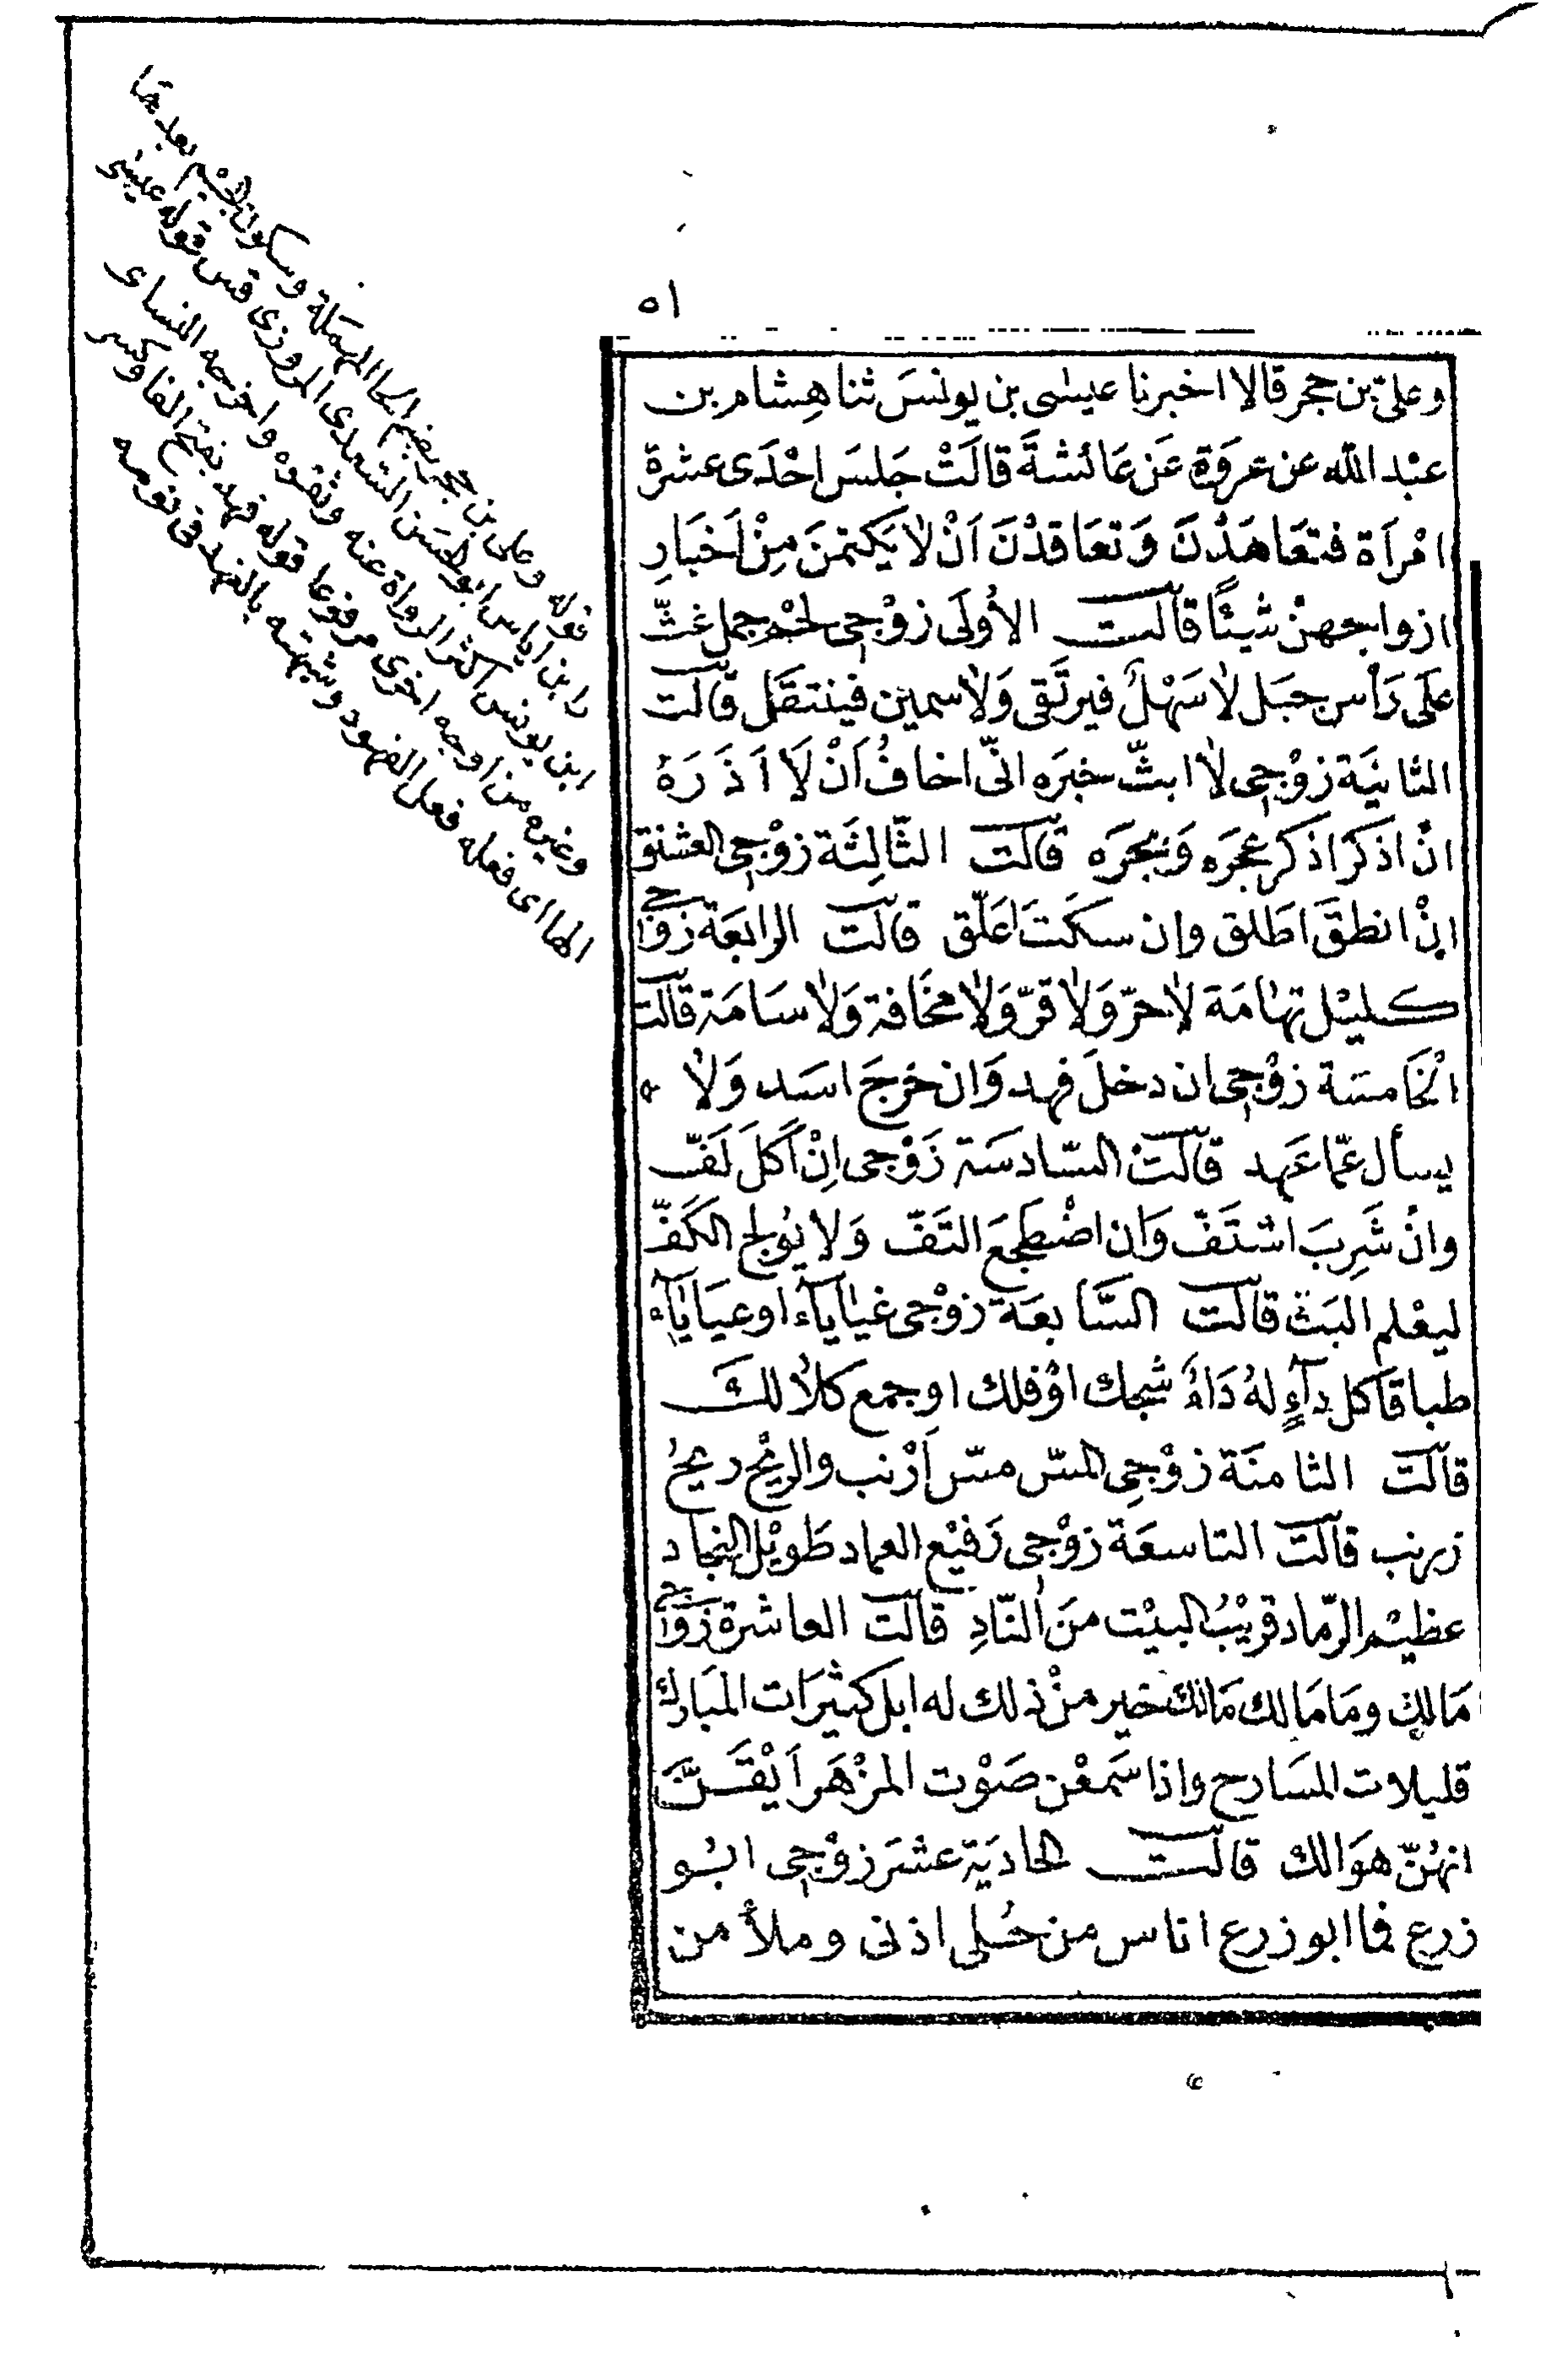 ٥١
وعلىّ بن حجر قالا اخبرنا عيسٰى بن يونسَ ثنا هِشام بن
عبْد اللّٰه عن عروَة عَن عَائشةَ قالَتْ جَلسَ احْدَى عشرة
امْرَاَة فتعَاهَدْنَ وَتعَاقدْنَ اَنْ لاٰ يَكتمنَ مِنْ اَخبَارِ
ازواجهنّ شيئًا قالت الأُولَى زوْجى لحْم جمل غثّ
علَى رَأس جبَل لاٰ سَهْلٌ فيرتَقى وَلاٰ سمين فينتقَل قالَت
الثانيَة زوْجى لاٰ ابثّ خبرَه انّى اخافُ اَنْ لَا اَذَرَهُ
انْ اذكرَ اذكر عجرَه وَبجرَه قالَت الثّالِثَة زوْجى العشنق
اِنْ انطقَ اطلق وان سكَتَ اعَلّق قالَت الرابعَة زوْجى
كليْل تهٰامَة لاٰ حرّ وَلاٰ قرّ وَلاٰ مخَافة وَلاٰ سَامَة قالَت
الْخَامسَة زوْجى ان دخلَ فهد وَان خرجَ اسَد وَلاٰ
يسأل عمّا عَهد قالَت السّادسَة زَوْجى اِنْ اَكلَ لَفّ
وانْ شَرِبَ اشتَفّ وَان اضْطجَعَ التَفّ وَلا يُولج الكَفّ
ليعْلم البَثّ قالَت السَّابعَة زوْجى غيَاياَء اوعيَاياَء
طباقَا كل دآءٍ لهُ دَاءٌ شجك اوْ فلك اوجمع كلاٰ لكَ
قالَت الثامنَة زوْجِى المسّ مسّ اَرْنب والريْح ريحُ
زرنب قالَت التاسعَة زوْجى رَفيْع العماد طَويْل النجاد
عظيْم الرّماد قريْبُ البيْت منَ النّادِ قالَت العاشرة زَوْجى
مَالِك ومَا مَالك مَالك خير منْ ذلك له ابل كثيرَات المبَارك
قليلات المسَارح واذا سَمعْن صَوْت المزْهَر اَيْقَنّ
انهُنّ هوَالك قالَت الحاديَة عشرَ زوْجى ابُو
زرع فما ابو زرع اناس من حُلى اذنى وملأ من
قوله وعلى بن حجر بضم الحا المهملة وسكون الجيم بعدها
را بن اياس ابو الحسَن السّعدى المروزى قس قوله عيسٰى
ابن يونس اكثر الرواة عنه وثقوه واخرجه النساى
وغيره من اوجه اخرى مرفوعا قوله فهد بفتح الفا وكسر
الها اى فعله فعل الفهود وشبهته بالفهد فى نومه